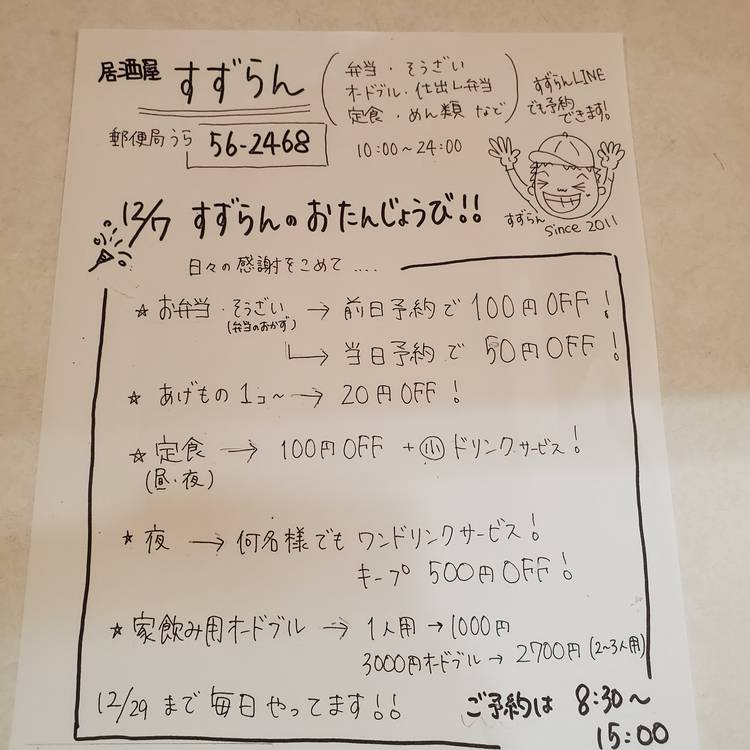 居酒屋 すずらん
(弁当・そうざい
オードブル・仕出し弁当
定食・めん類 など)
すずらんLINE
でも予約
できます!
郵便局うら 56-2468
10:00~24:00
すずらん
since 2011
12/7 すずらんのおたんじょうび!!
日々の感謝をこめて ....
☆ お弁当・そうざい → 前日予約で 100円OFF!
(弁当のおかず)
→ 当日予約で 50円OFF!
☆ あげもの 1コ~ → 20円OFF!
☆ 定食 → 100円OFF + ㊂ドリンクサービス!
(昼・夜)
☆ 夜 → 何名様でも ワンドリンクサービス!
キープ 500円OFF!
☆ 家飲み用オードブル → 1人用 → 1000円
3000円オードブル → 2700円 (2~3人用)
12/29 まで 毎日 やってます!!
ご予約は 8:30~
15:00